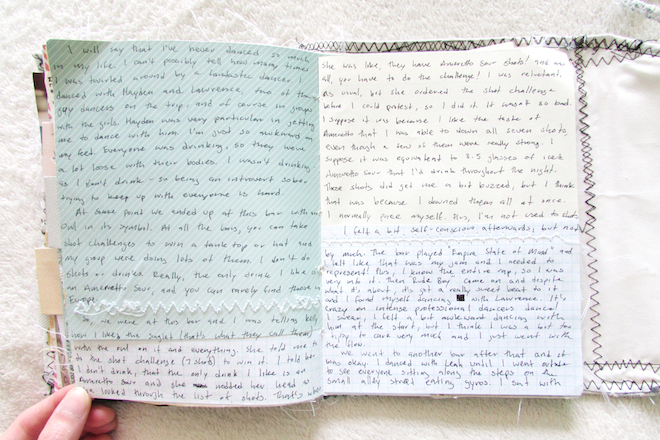 I will say that I've never danced so much
in my life. I can't possibly tell how many times
I was twirled around by a fantastic dancer. I
danced with Hayden and Lawrence, two of the
guy dancers on the trip, and of course in groups
with the girls. Hayden was very particular in getting
me to dance with him. I'm just so awkward on
my feet. Everyone was drinking, so they were
a lot loose with their bodies. I wasn't drinking
as I don't drink - so being an introvert sober
trying to keep up with everyone is hard.
At some point we ended up at this bar with an
owl in its symbol. At all the bars, you can take
shot challenges to win a tank top or hat and
my group were doing lots of them. I don't do
shots or drinks. Really, the only drink I like is
an Amaretto Sour, and you can rarely find those in
Europe.
we were at this bar and I was telling
I like the singlet (that's what they call them)
with the owl on it and everything. She told me to
do the shot challenge (7 shots) to win it. I told her
I don't drink, that the only drink I like is an
Amaretto Sour and she nodded her head as
she looked through the list of shots. That's when
she was like, they have Amaretto Sour shots! and
all, you have to do the challenge! I was reluctant,
as usual, but she ordered the shot challenge
before I could protest, so I did it. It wasn't so bad.
I suppose it was because I like the taste of
Amaretto that I was able to down all seven shots,
even though a few of them were really strong. I
suppose it was equivalent to 3.5 glasses of iced
Amaretto Sour that I'd drink throughout the night.
Those shots did get me a bit buzzed, but I think
that was because I downed them all at once.
I normally pace myself. Plus, I'm not used to shots.
I felt a bit self-conscious afterwards, but not
by much. The bar played "Empire State of Mind" and
I felt like that was my jam and I needed to
represent! Plus, I know the entire rap, so I was
very into it. Then Rude Boy came on and despite
what it's about, it's got a really sweet beat to it
and I found myself dancing with Lawrence. It's
crazy on intense professional dancers dance!
I swear, I felt a bit awkward dancing with
him at the start, but I think I was a bit too
tipsy to care very much and I just went with
the flow.
We went to another bar after that and it
was okay. I danced with Leah until I went outside
to see everyone sitting along the steps on the
small alley street eating gyros. I sat with